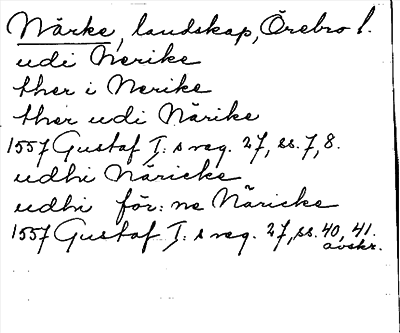 Närke, landskap, Örebro l.
udi Nerike
ther i Nerike
ther udi Närike
1557 Gustaf I:s reg. 27, ss. 7, 8.
udhi Näricke
udhi för:ne Näricke
1557 Gustaf I:s reg. 27, ss. 40, 41.
avskr.